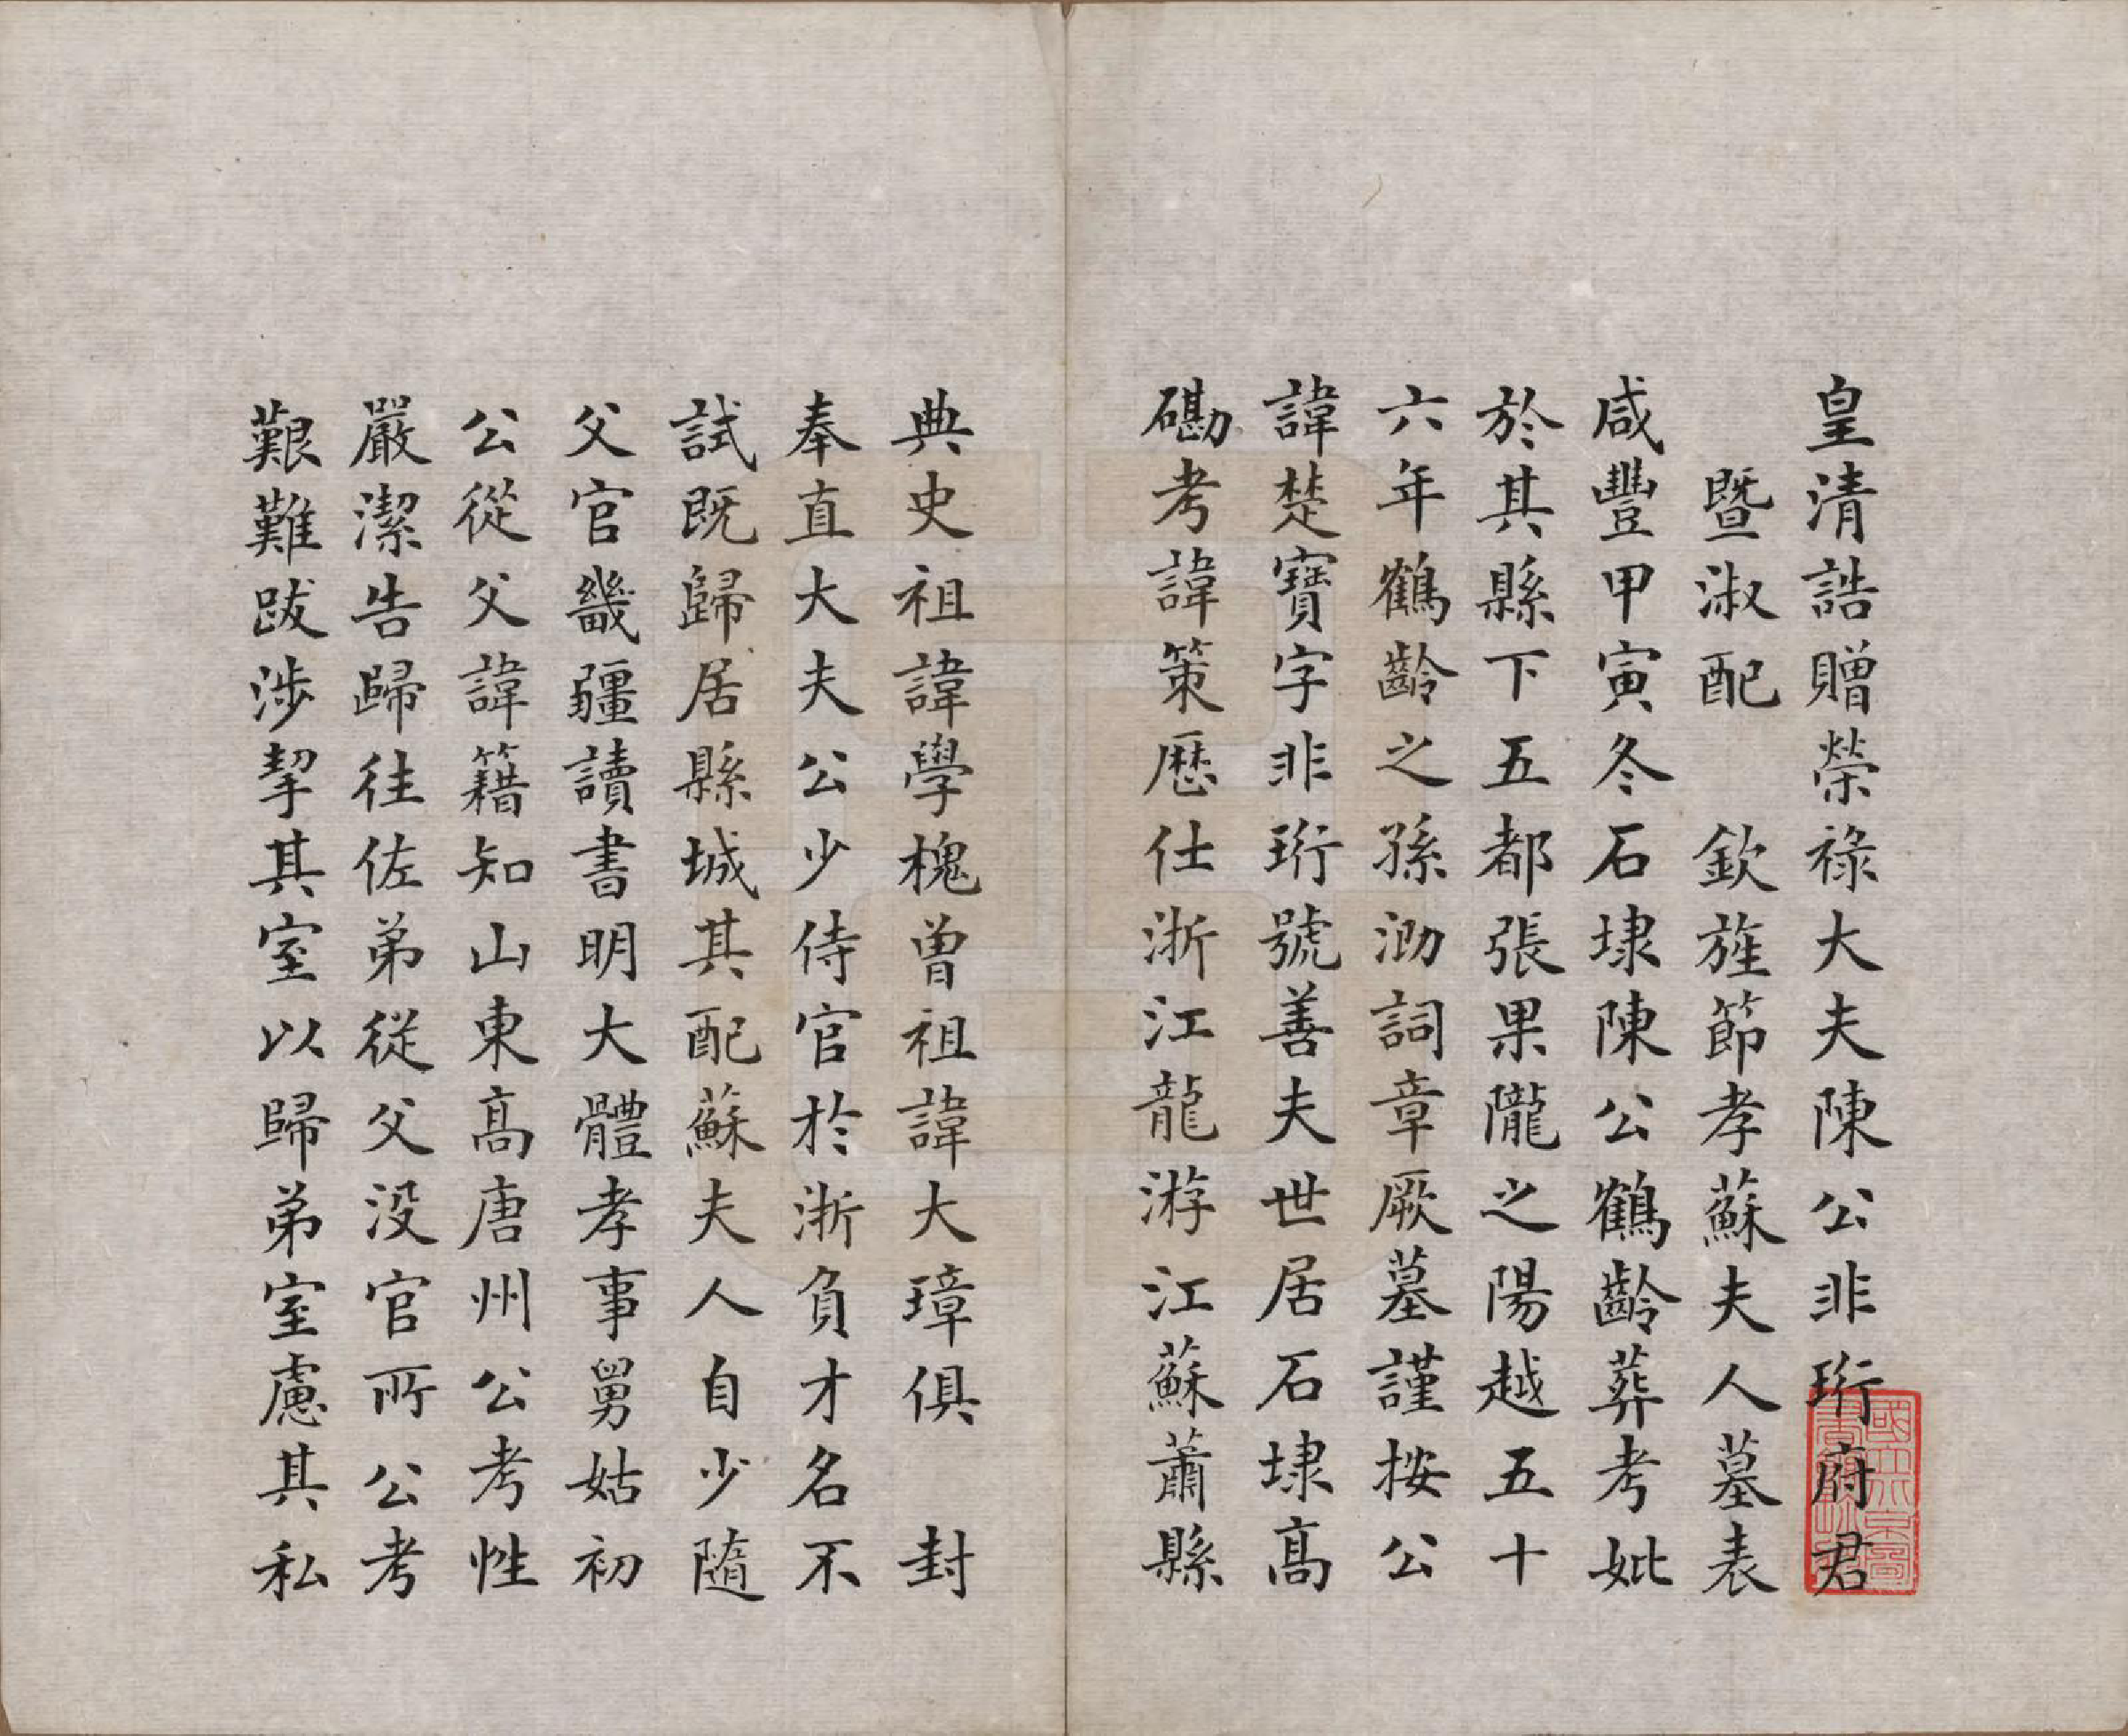 皇清誥贈榮祿大夫陳公非珩府君
暨淑配　欽旌節孝蘇夫人墓表
咸豐甲寅冬石埭陳公鶴齡葬考妣
於其縣下五都張果隴之陽越五十
六年鶴齡之孫泐詞章厥墓謹按公
諱楚寶字非珩號善夫世居石埭高
磡考諱策歷仕浙江龍游江蘇蕭縣
典史祖諱學槐曾祖諱大璋俱　封
奉直大夫公少侍官於浙負才名不
試既歸居縣城其配蘇夫人自少隨
父官畿疆讀書明大體孝事舅姑初
公從父諱籍知山東高唐州公考性
嚴潔告歸往佐弟從父没官所公考
艱難跋涉挈其室以歸弟室慮其私